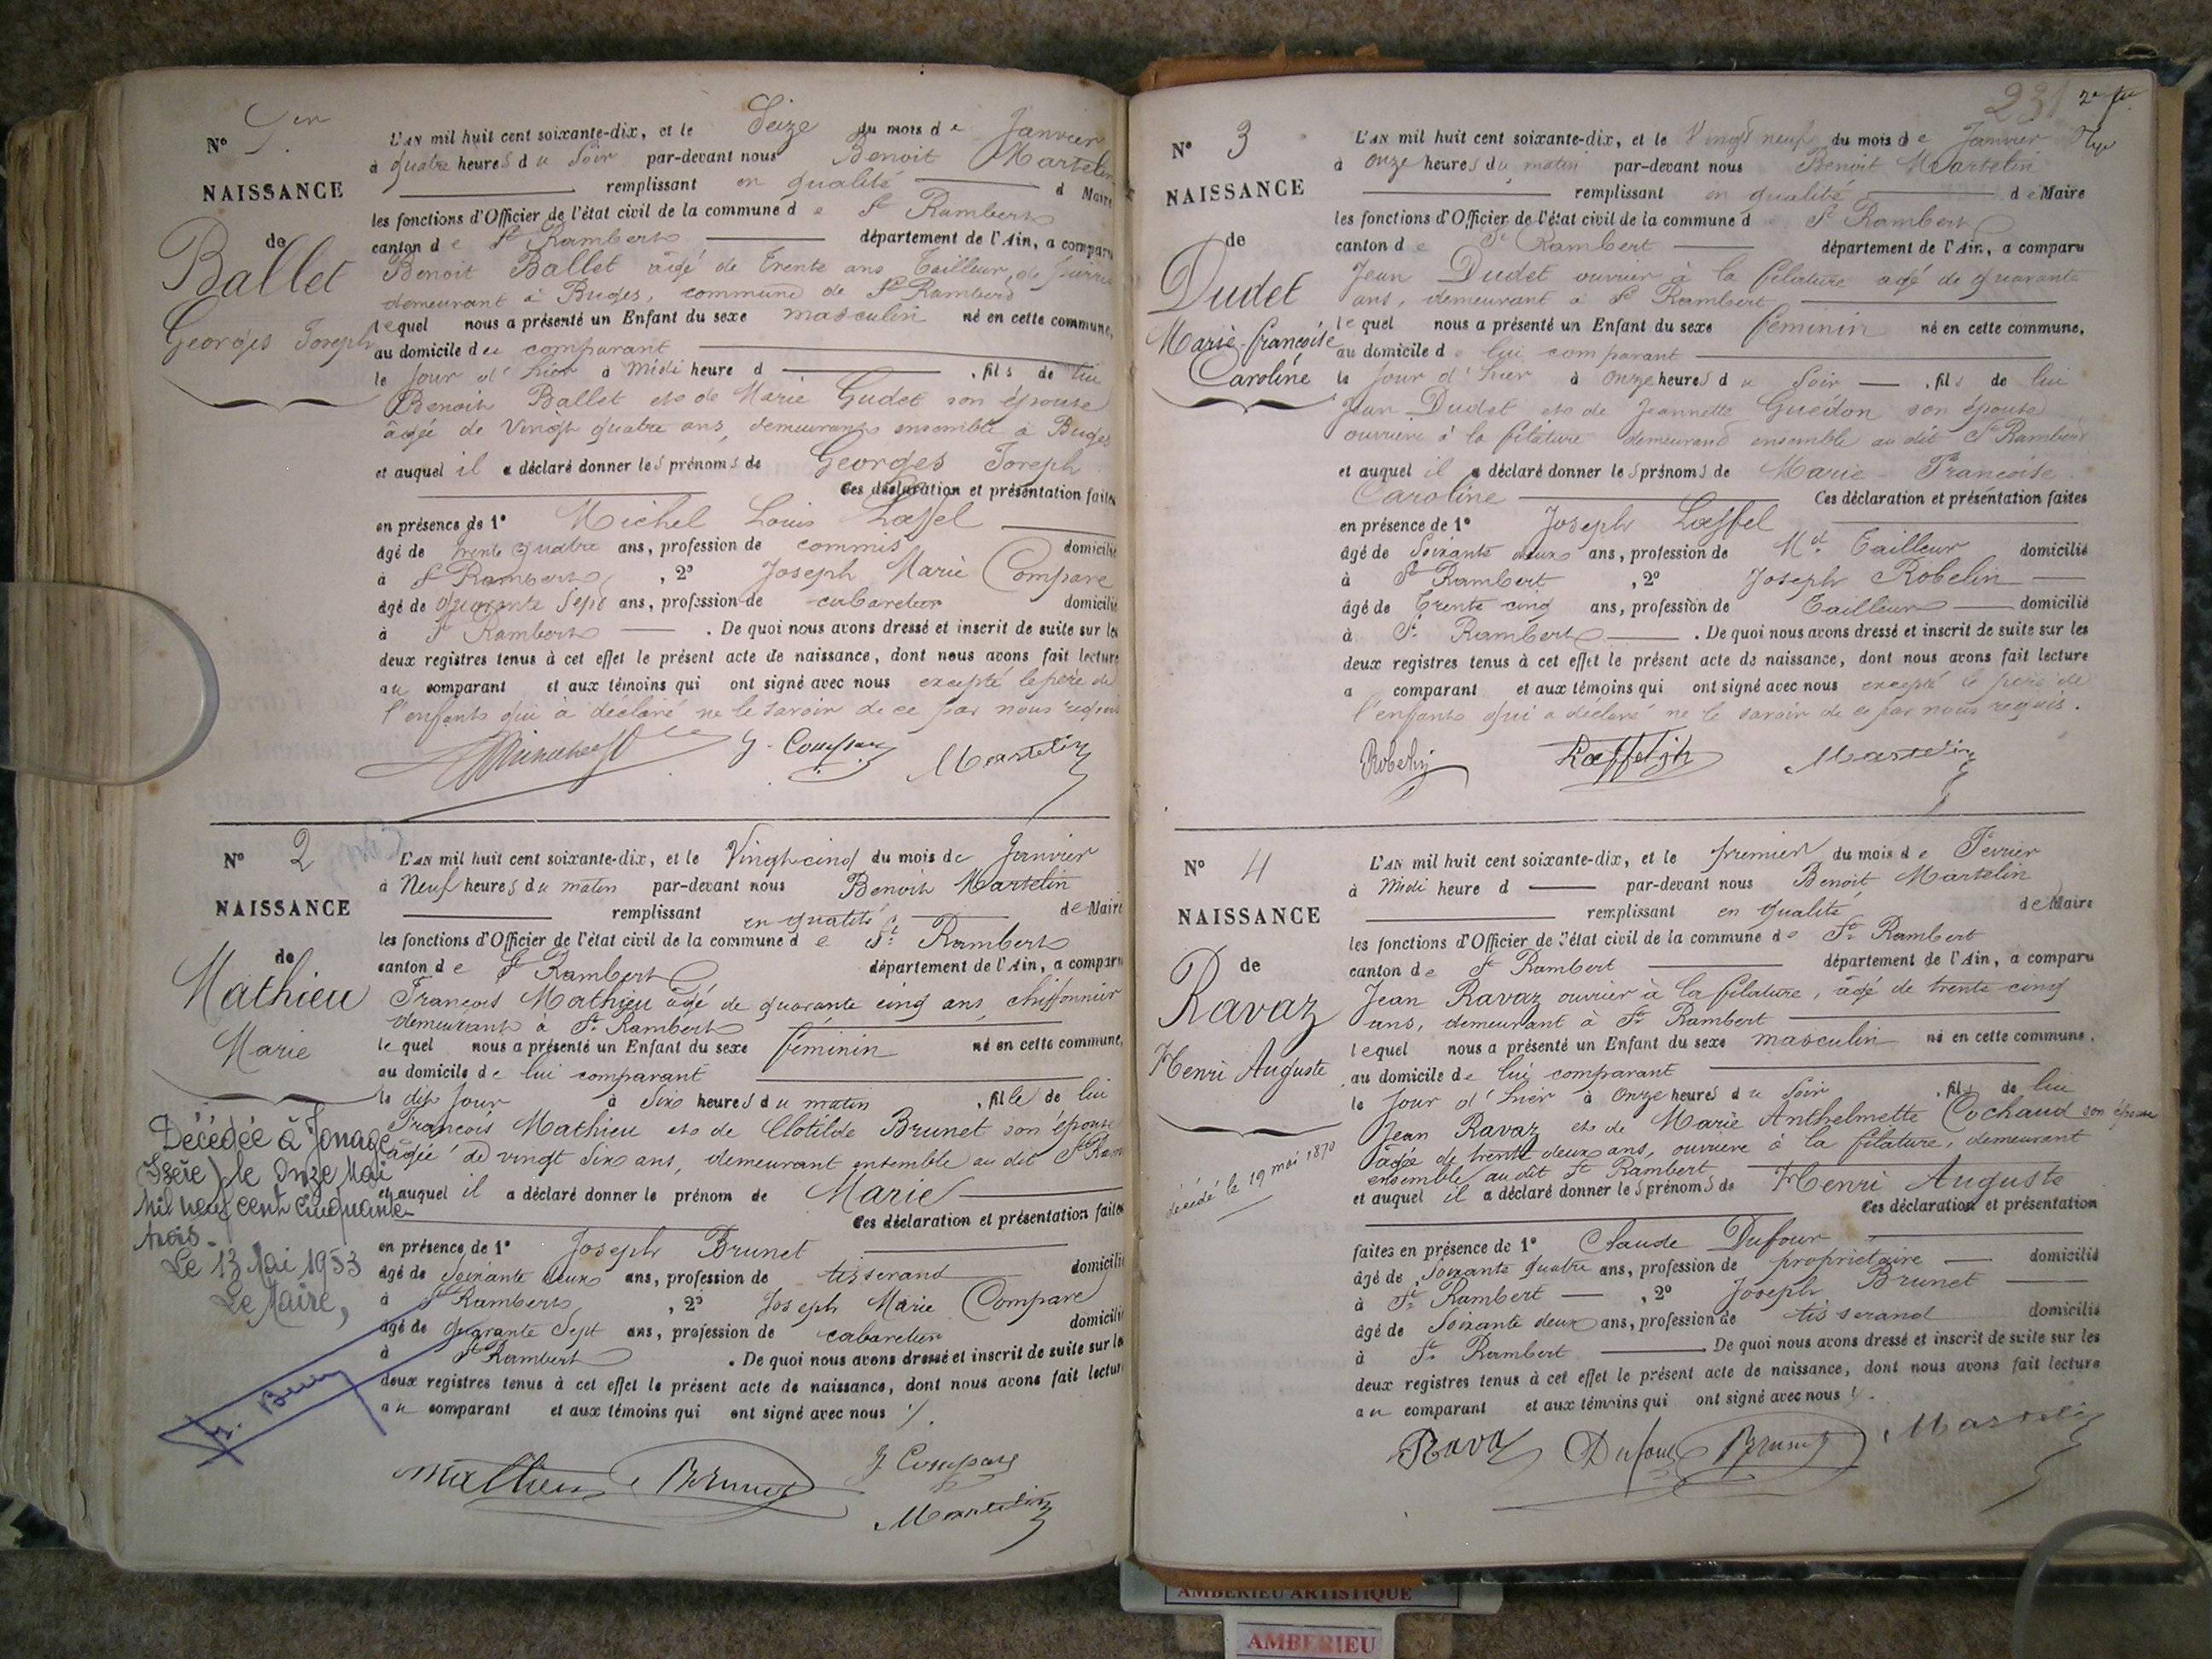 N° 1er
NAISSANCE
de
Ballet
Georges Joseph
L'AN mil huit cent soixante-dix, et le Seize du mois de Janvier
à quatre heures du Soir par-devant nous Benoit Martelin
remplissant en qualité d Maire
les fonctions d'Officier de l'état civil de la commune de St Rambert
canton de St Rambert département de l'Ain, a comparu
Benoit Ballet âgé de trente ans tailleur de pierre
demeurant à Buges, commune de St Rambert
lequel nous a présenté un Enfant du sexe masculin né en cette commune,
au domicile du comparant
le jour d'hier à midi heure d , fils de lui
Benoit Ballet et de Marie Gudet son épouse
âgée de vingt quatre ans, demeurant ensemble à Buges
et auquel il a déclaré donner les prénoms de Georges Joseph
Ces déclaration et présentation faites
en présence de 1° Michel Louis Læffel
âgé de trente quatre ans, profession de commis domicilié
à St Rambert, 2° Joseph Marie Compare
âgé de quarante sept ans, profession de cabaretier domicilié
à St Rambert . De quoi nous avons dressé et inscrit de suite sur les
deux registres tenus à cet effet le présent acte de naissance, dont nous avons fait lecture
au comparant et aux témoins qui ont signé avec nous excepté le père de
l'enfant qui a déclaré ne le savoir de ce par nous requis
J. Compare Martelin
N° 2
NAISSANCE
de
Mathieu
Marie
Décédée à Jonage
(Isère) le onze Mai
mil neuf cent cinquante
trois.
Le 13 Mai 1953
Le Maire,
L'AN mil huit cent soixante-dix, et le Vingt cinq du mois de Janvier
à Neuf heures du matin par-devant nous Benoit Martelin
remplissant en qualité de Maire
les fonctions d'Officier de l'état civil de la commune de St Rambert
canton de St Rambert département de l'Ain, a comparu
François Mathieu âgé de quarante cinq ans, chiffonnier
demeurant à St Rambert
lequel nous a présenté un Enfant du sexe féminin né en cette commune,
au domicile de lui comparant
le dit jour à six heures du matin , fille de lui
François Mathieu et de Clotilde Brunet son épouse
âgée de vingt six ans, demeurant ensemble au dit St Ram
et auquel il a déclaré donner le prénom de Marie
Ces déclaration et présentation faites
en présence de 1° Joseph Brunet
âgé de soixante deux ans, profession de tisserand domicilié
à St Rambert, 2° Joseph Marie Compare
âgé de quarante sept ans, profession de cabaretier domicilié
à St Rambert . De quoi nous avons dressé et inscrit de suite sur les
deux registres tenus à cet effet le présent acte de naissance, dont nous avons fait lecture
au comparant et aux témoins qui ont signé avec nous ./.
Mathieu Brunet J Compare
Martelin
231
N° 3
NAISSANCE
de
Dudet
Marie-françoise
Caroline
L'AN mil huit cent soixante-dix, et le Vingt neuf du mois de Janvier
à onze heures du matin par-devant nous Benoit Martelin
remplissant en qualité de Maire
les fonctions d'Officier de l'état civil de la commune de St Rambert
canton de St Rambert département de l'Ain, a comparu
Jean Dudet ouvrier à la filature âgé de quarante
ans, demeurant à St Rambert
lequel nous a présenté un Enfant du sexe féminin né en cette commune,
au domicile de lui comparant
le jour d'hier à onze heures du Soir , fils de lui
Jean Dudet et de Jeannette Guédon son épouse
ouvrière à la filature demeurant ensemble au dit St Rambert
et auquel il a déclaré donner les prénoms de Marie-Françoise
Caroline Ces déclaration et présentation faites
en présence de 1° Joseph Læffel
âgé de Soixante deux ans, profession de Md Tailleur domicilié
à St Rambert , 2° Joseph Robelin
âgé de trente cinq ans, profession de Tailleur domicilié
à St Rambert . De quoi nous avons dressé et inscrit de suite sur les
deux registres tenus à cet effet le présent acte de naissance, dont nous avons fait lecture
a comparant et aux témoins qui ont signé avec nous excepté le père de
l'enfant qui a déclaré ne le savoir de ce par nous requis.
Robelin Læffel Martelin
N° 4
NAISSANCE
de
Ravaz
Henri Auguste
décédé le 19 mai 1870
L'AN mil huit cent soixante-dix, et le premier du mois de Février
à Midi heure d par-devant nous Benoit Martelin
remplissant en qualité de Maire
les fonctions d'Officier de l'état civil de la commune de St Rambert
canton de St Rambert département de l'Ain, a comparu
Jean Ravaz ouvrier à la filature, âgé de trente cinq
ans, demeurant à St Rambert
lequel nous a présenté un Enfant du sexe masculin né en cette commune,
au domicile de lui comparant
le jour d'hier à onze heures du Soir , fils de lui
Jean Ravaz et de Marie Anthelmette Cochaud son épouse
âgée de trente deux ans, ouvrière à la filature, demeurant
ensemble au dit St Rambert
et auquel il a déclaré donner les prénoms de Henri Auguste
Ces déclaration et présentation
faites en présence de 1° Claude Dufour
âgé de Soixante quatre ans, profession de propriétaire domicilié
à St Rambert , 2° Joseph Brunet
âgé de Soixante deux ans, profession de tisserand domicilié
à St Rambert De quoi nous avons dressé et inscrit de suite sur les
deux registres tenus à cet effet le présent acte de naissance, dont nous avons fait lecture
au comparant et aux témoins qui ont signé avec nous ./.
Ravaz Dufour Brunet Martelin
AMBERIEU ARTISTIQUE
AMBERIEU